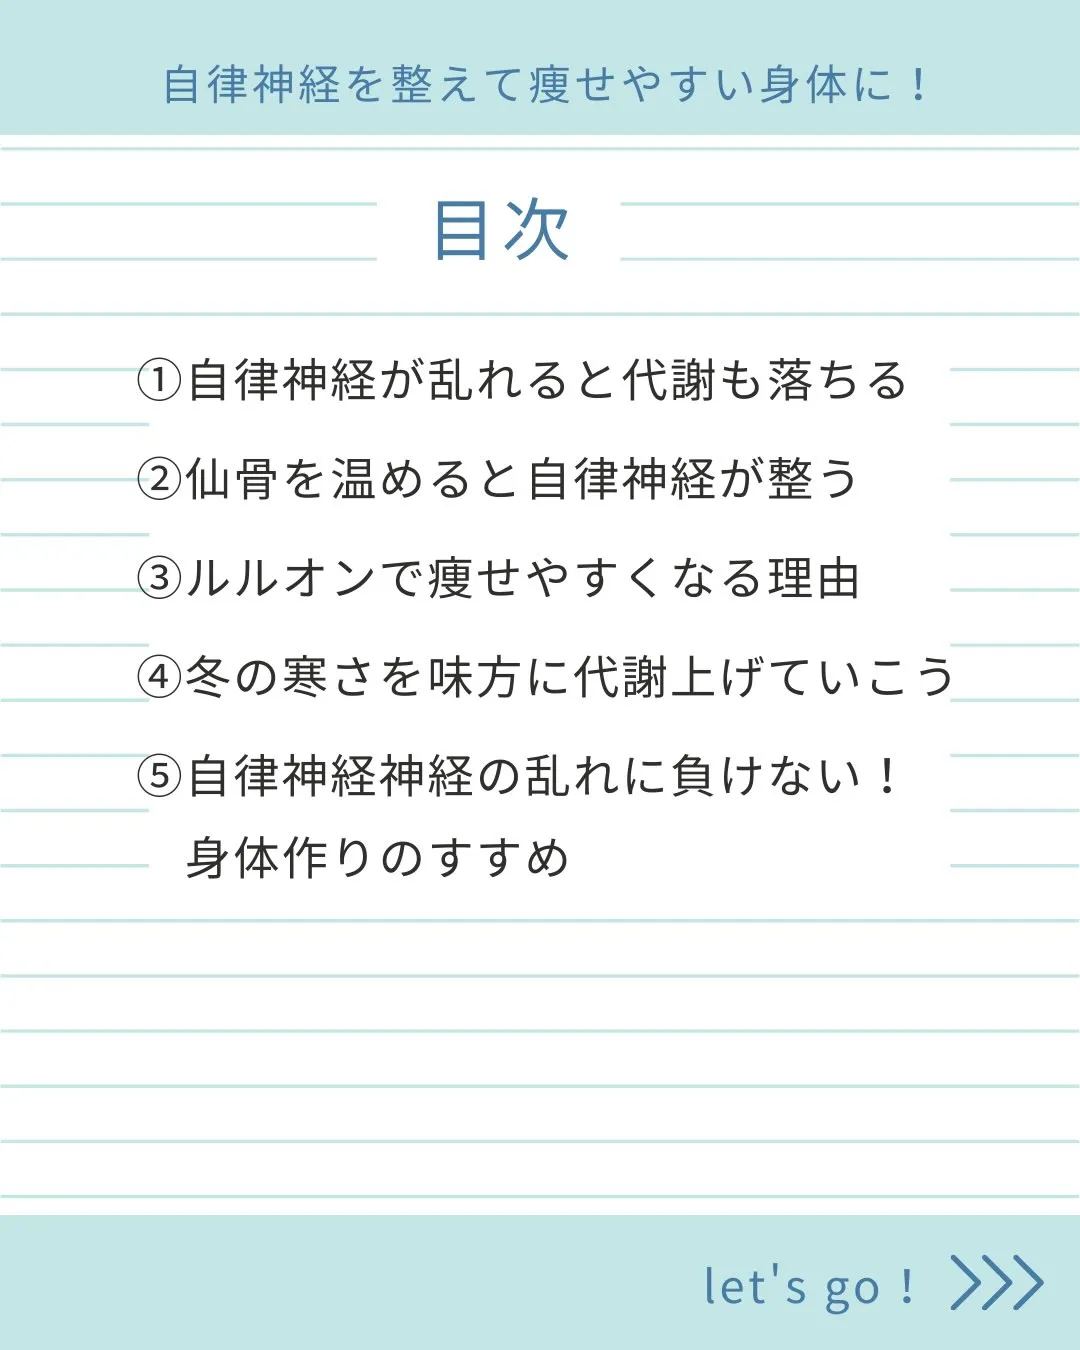 自律神経を整えて痩せやすい身体に！
目次
①自律神経が乱れると代謝も落ちる
②仙骨を温めると自律神経が整う
③ルルオンで痩せやすくなる理由
④冬の寒さを味方に代謝上げていこう
⑤自律神経神経の乱れに負けない！
身体作りのすすめ
let's go！